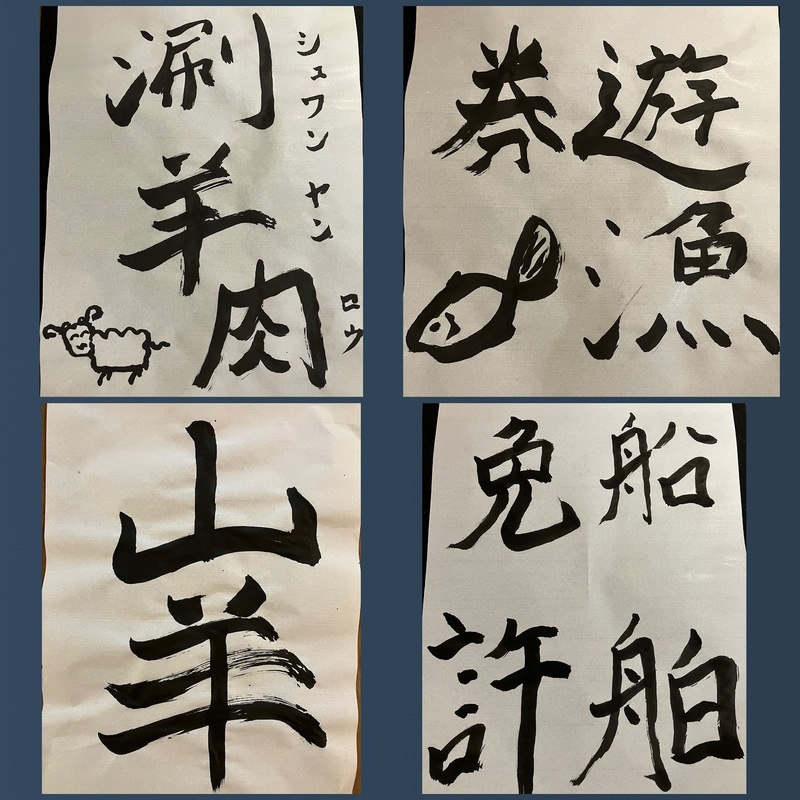 涮羊肉
シュワン ヤン ロウ
遊漁
券
山羊
船舶
免許